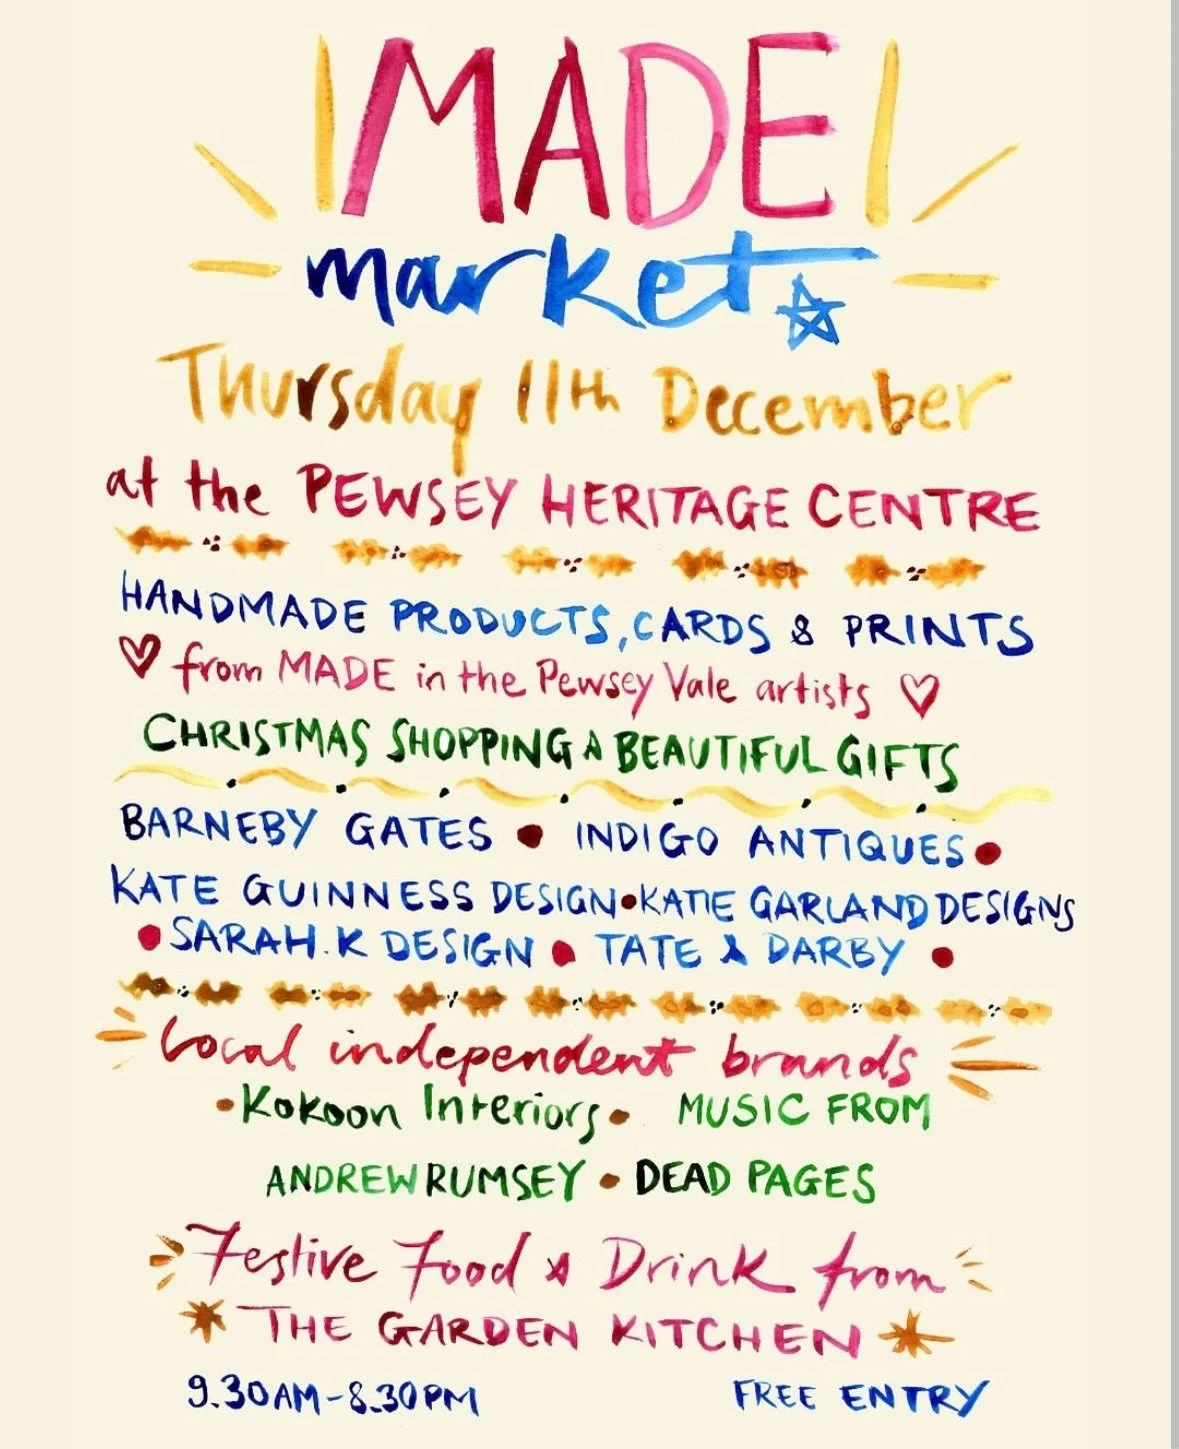 MADE
market
Thursday 11th December
at the PEWSEY HERITAGE CENTRE
HANDMADE PRODUCTS, CARDS & PRINTS
from MADE in the Pewsey Vale artists
CHRISTMAS SHOPPING & BEAUTIFUL GIFTS
BARNEBY GATES • INDIGO ANTIQUES •
KATE GUINNESS DESIGN • KATIE GARLAND DESIGNS
• SARAH.K DESIGN • TATE & DARBY •
Local independent brands
• Kokoon Interiors • MUSIC FROM
ANDREW RUMSEY • DEAD PAGES
Festive Food & Drink from
THE GARDEN KITCHEN
9.30AM-8.30PM FREE ENTRY